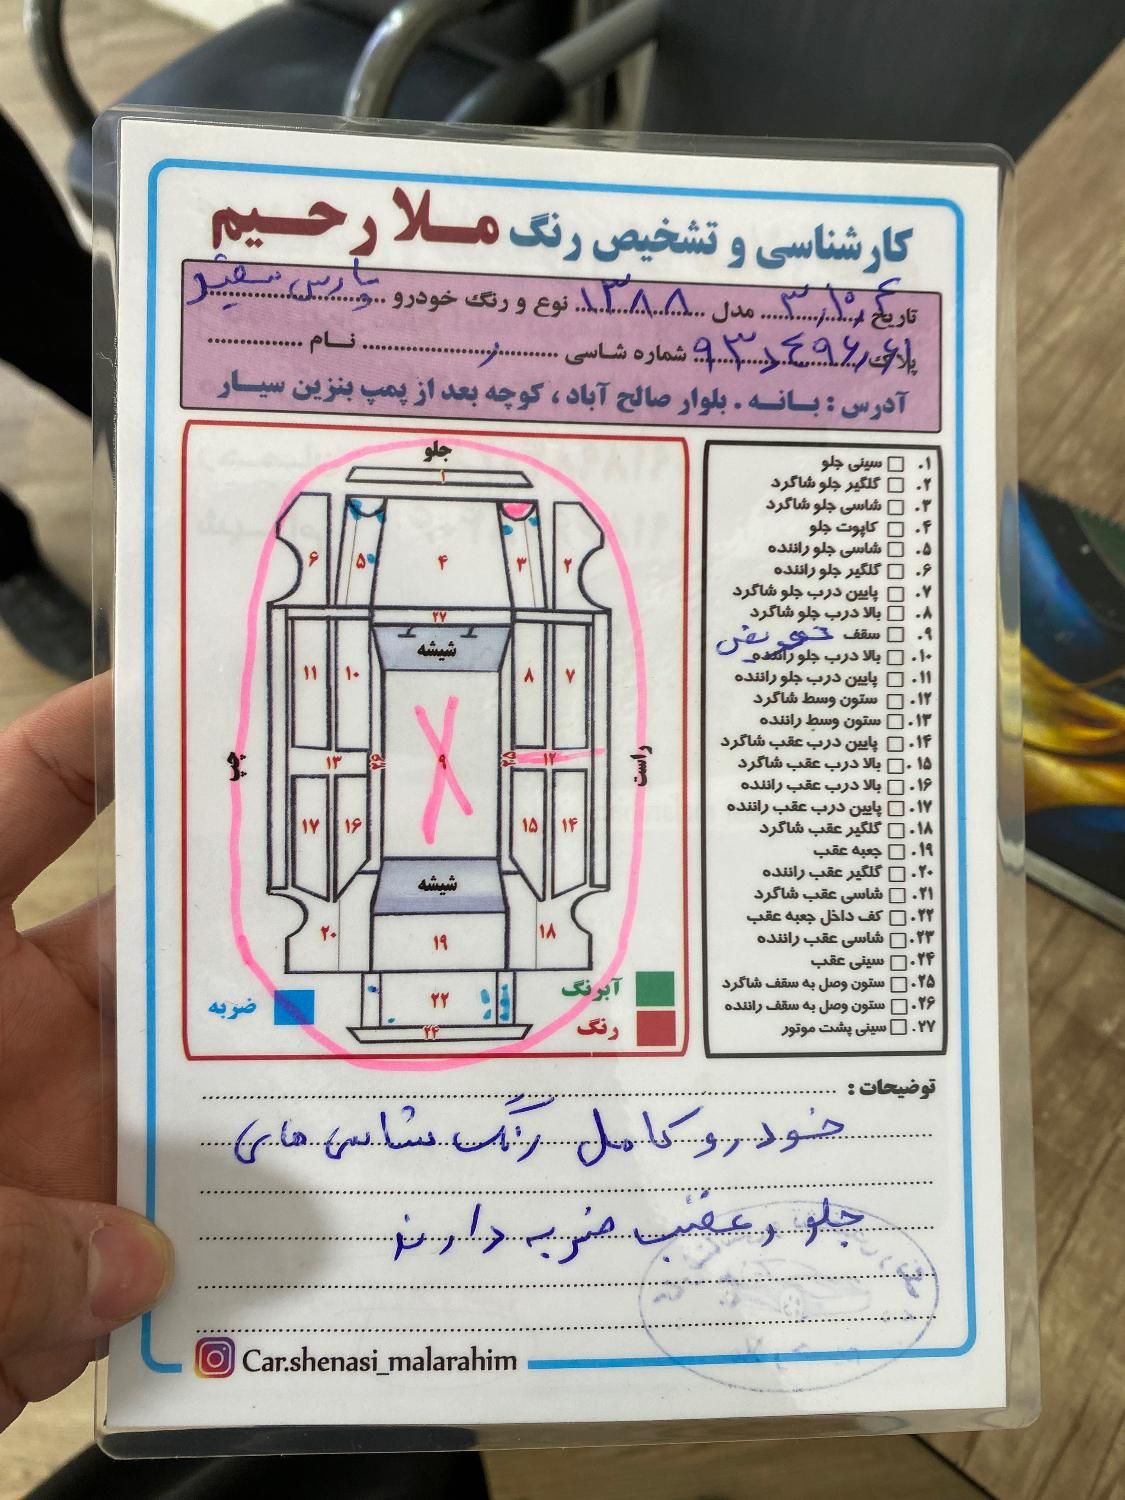 کارشناسی و تشخیص رنگ ملا رحیم
تاریخ ۳,۱۰,۴ مدل ۱۳۸۸ نوع و رنگ خودرو پارس سفید
پلاک شماره شاسی نام
آدرس : بانه . بلوار صالح آباد ، کوچه بعد از پمپ بنزین سیار
جلو
۱
۶
۵
۴
۳
۲
۲۷
شیشه
۱۱
۱۰
۸
۷
چپ
۱۳
۲۶
۹
۲۵
۱۲
راست
۱۷
۱۶
۱۵
۱۴
شیشه
۲۰
۱۹
۱۸
۲۲
۲۴
ضربه
آبرنگ
رنگ
۱. سینی جلو
۲. گلگیر جلو شاگرد
۳. شاسی جلو شاگرد
۴. کاپوت جلو
۵. شاسی جلو راننده
۶. گلگیر جلو راننده
۷. پایین درب جلو شاگرد
۸. بالا درب جلو شاگرد
۹. سقف تعویض
۱۰. بالا درب جلو راننده
۱۱. پایین درب جلو راننده
۱۲. ستون وسط شاگرد
۱۳. ستون وسط راننده
۱۴. پایین درب عقب شاگرد
۱۵. بالا درب عقب شاگرد
۱۶. بالا درب عقب راننده
۱۷. پایین درب عقب راننده
۱۸. گلگیر عقب شاگرد
۱۹. جعبه عقب
۲۰. گلگیر عقب راننده
۲۱. شاسی عقب شاگرد
۲۲. کف داخل جعبه عقب
۲۳. شاسی عقب راننده
۲۴. سینی عقب
۲۵. ستون وصل به سقف شاگرد
۲۶. ستون وصل به سقف راننده
۲۷. سینی پشت موتور
توضیحات :
خودرو کامل رنگ شاسی های
جلو و عقب ضربه دارند
Car.shenasi_malarahim